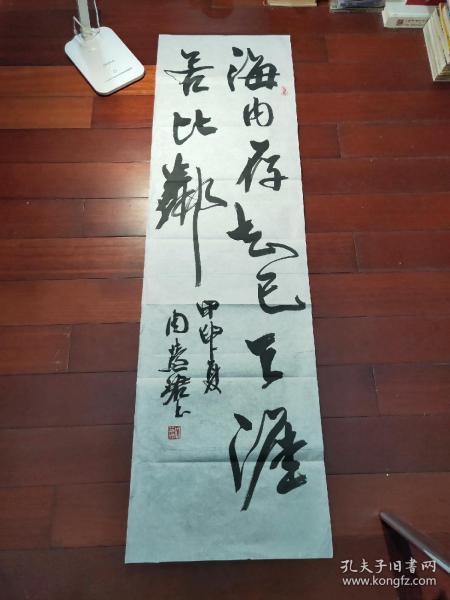 海内存知己天涯
若比邻
甲申夏
周慧珺书
孔夫子旧书网
www.kongfz.com